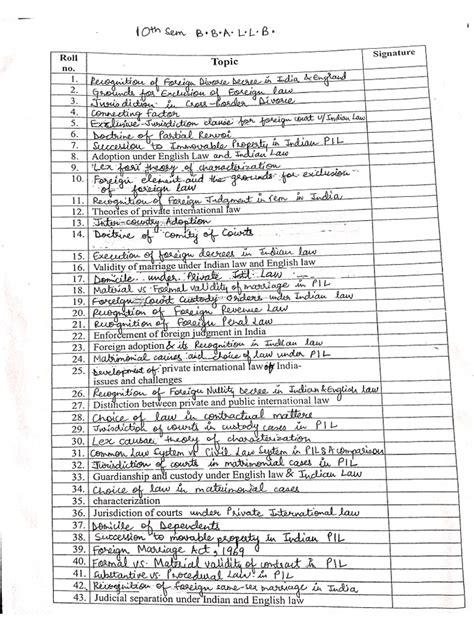 10th Sem B.B.A.L.L.B.
Roll no. Topic Signature
1. Recognition of Foreign Divorce Decree in India & England
2. Grounds for Exclusion of Foreign law
3. Jurisdiction in Cross-border Divorce
4. Connecting Factor
5. Exclusive Jurisdiction clause for foreign court v/s Indian Law
6. Doctrine of Partial Renvoi
7. Succession to Immovable Property in Indian PIL
8. Adoption under English Law and Indian Law
9. "Lex fori" theory of characterization
10. Foreign element and the grounds for exclusion
of foreign law
11. Recognition of Foreign Judgment in rem in India
12. Theories of private international law
13. Inter-country Adoption
14. Doctrine of Comity of Courts
15. Execution of foreign decrees in Indian law
16. Validity of marriage under Indian law and English law
17. Domicile under Private Intl. Law
18. Material vs Formal validity of marriage in PIL
19. Foreign Court Custody Orders under Indian law
20. Recognition of Foreign Revenue Law
21. Recognition of Foreign Penal Law
22. Enforcement of foreign judgment in India
23. Foreign adoption & its Recognition in Indian law
24. Matrimonial causes and choice of law under PIL
25. Development of private international law of India-
issues and challenges
26. Recognition of Foreign Nullity Decree in Indian & English Law
27. Distinction between private and public international law
28. Choice of law in contractual matters
29. Jurisdiction of courts in custody cases in PIL
30. Lex causae theory of characterization
31. Common Law System vs Civil Law System in PIL & A comparison
32. Jurisdiction of courts in matrimonial cases in PIL
33. Guardianship and custody under English law & Indian Law
34. Choice of law in matrimonial cases
35. characterization
36. Jurisdiction of courts under Private International law
37. Domicile of Dependents
38. Succession to movable property in Indian PIL
39. Foreign Marriage Act, 1969
40. Formal vs. Material validity of contract in PIL
41. Substantive vs. Procedural Law in PIL
42. Recognition of foreign same-sex marriage in India
43. Judicial separation under Indian and English law